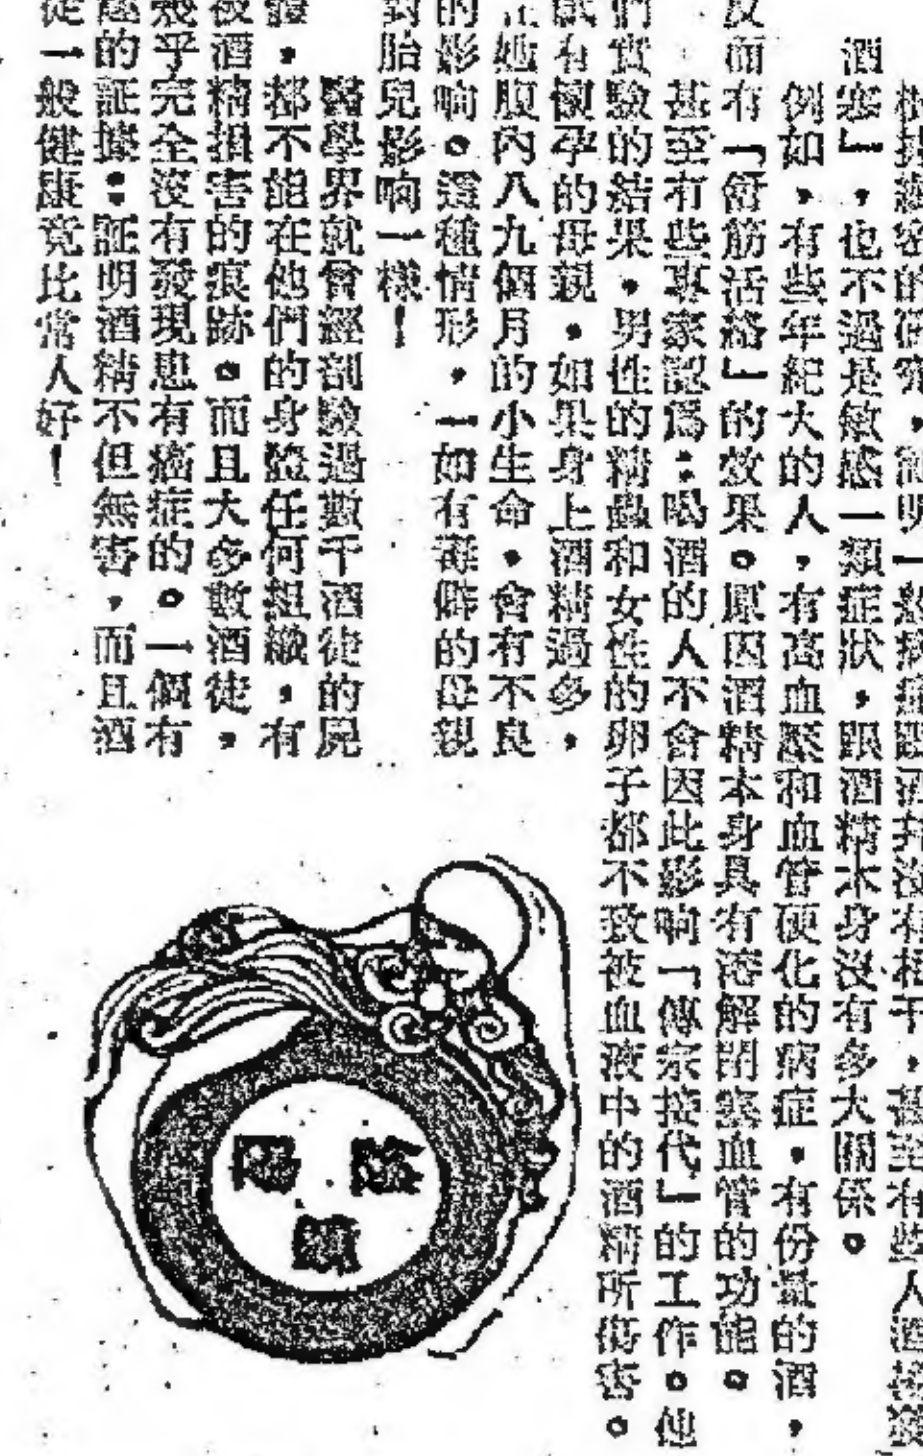 一些病痛跟酒并沒有相干,甚至有些人酒後
酒寒」,也不過是敏感一類症狀,跟酒精本身沒有多大關係。
例如,有些年紀大的人,有高血壓和血管硬化的病症,有份量的酒,
反而有「舒筋活絡」的效果。原因酒精本身具有溶解閉塞血管的功能。
甚至有些專家認爲:喝酒的人不會因此影响「傳宗接代」的工作。他
們實驗的結果,男性的精蟲和女性的卵子都不致被血液中的酒精所傷害。
祇有懷孕的母親,如果身上酒精過多,
在她腹內八九個月的小生命,會有不良
的影响。這種情形,一如有毒僻的母親
對胎兒影响一樣!
醫學界就曾經剖驗過數千酒徒的屍
體,都不能在他們的身體任何組織,有
被酒精損害的痕跡。而且大多數酒徒,
幾乎完全沒有發現患有癌症的。一個有
趣的証據:証明酒精不但無害,而且酒
徒一般健康竟比常人好!
陰陽